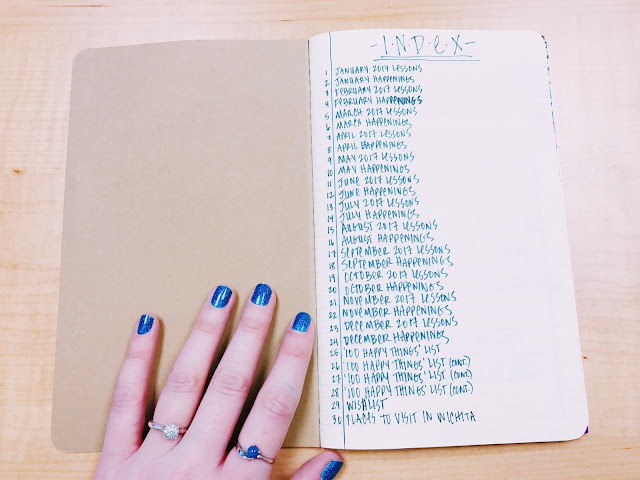 -I·N·D·E·X-
1 JANUARY 2017 LESSONS
2 JANUARY HAPPENINGS
3 FEBRUARY 2017 LESSONS
4 FEBRUARY HAPPENINGS
5 MARCH 2017 LESSONS
6 MARCH HAPPENINGS
7 APRIL 2017 LESSONS
8 APRIL HAPPENINGS
9 MAY 2017 LESSONS
10 MAY HAPPENINGS
11 JUNE 2017 LESSONS
12 JUNE HAPPENINGS
13 JULY 2017 LESSONS
14 JULY HAPPENINGS
15 AUGUST 2017 LESSONS
16 AUGUST HAPPENINGS
17 SEPTEMBER 2017 LESSONS
18 SEPTEMBER HAPPENINGS
19 OCTOBER 2017 LESSONS
20 OCTOBER HAPPENINGS
21 NOVEMBER 2017 LESSONS
22 NOVEMBER HAPPENINGS
23 DECEMBER 2017 LESSONS
24 DECEMBER HAPPENINGS
25 '100 HAPPY THINGS' LIST
26 '100 HAPPY THINGS' LIST (CONT.)
27 '100 HAPPY THINGS' LIST (CONT.)
28 '100 HAPPY THINGS' LIST (CONT.)
29 WISHLIST
30 PLACES TO VISIT IN WICHITA